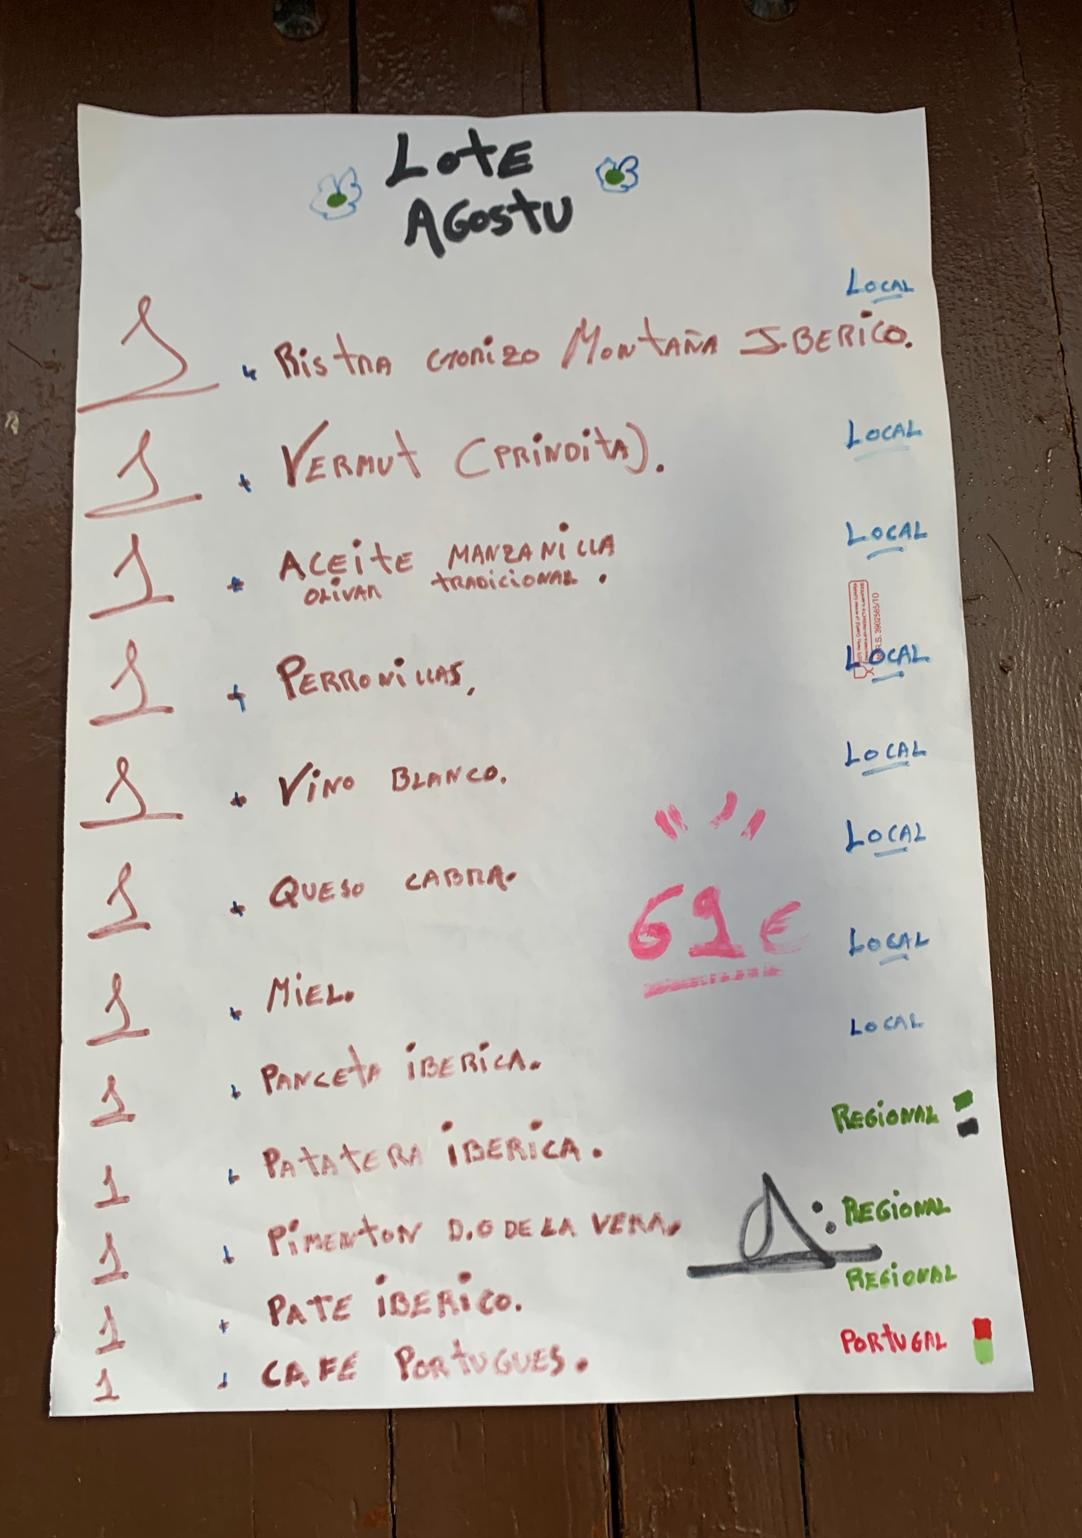 LOTE
AGOSTU
LOCAL
1 + RISTRA CHORIZO MONTAÑA IBERICO.
1 + VERMUT (PRINDITA). LOCAL
1 + ACEITE MANZANILLA LOCAL
OLIVAR TRADICIONAL.
1 + PERRONILLAS, LOCAL
1 + VINO BLANCO. LOCAL
LOCAL
1 + QUESO CABRA.
69€
1 + MIEL. LOCAL
1 + PANCETA IBERICA. LOCAL
1 + PATATERA IBERICA. REGIONAL
1 + PIMENTON D.O DE LA VERA. REGIONAL
1 + PATE IBERICO. REGIONAL
1 + CAFE PORTUGUES. PORTUGAL